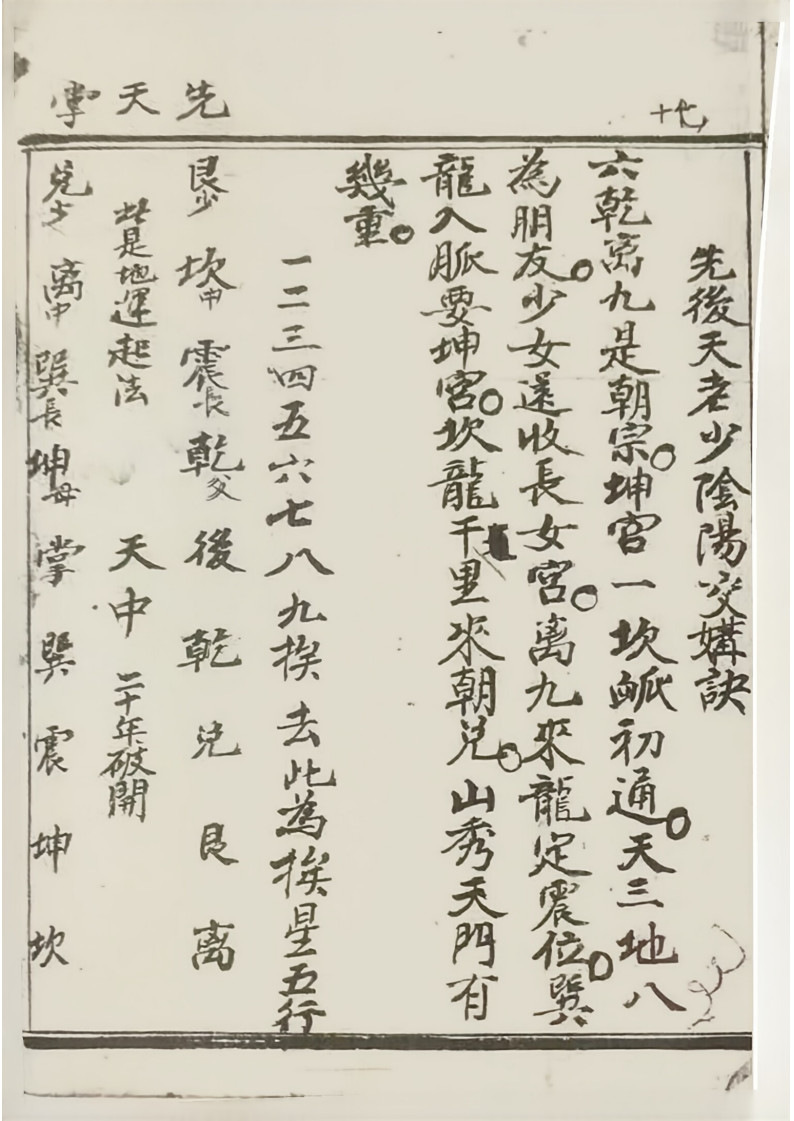 十七
先天掌
先後天老少陰陽交媾訣
六乾离九是朝宗。坤宫一坎脈初通。天三地八
為朋友。少女還收長女宫。离九來龍定震位。巽
龍入脈要坤宫。坎龍千里來朝兑。山秀天門有
幾重。
一二三四五六七八九挨去此為挨星五行
艮少 坎中 震長 乾父 後 乾 兑 艮 离
此是地運起法 天中 二十年破開
兑少 离中 巽長 坤母 掌 巽 震 坤 坎